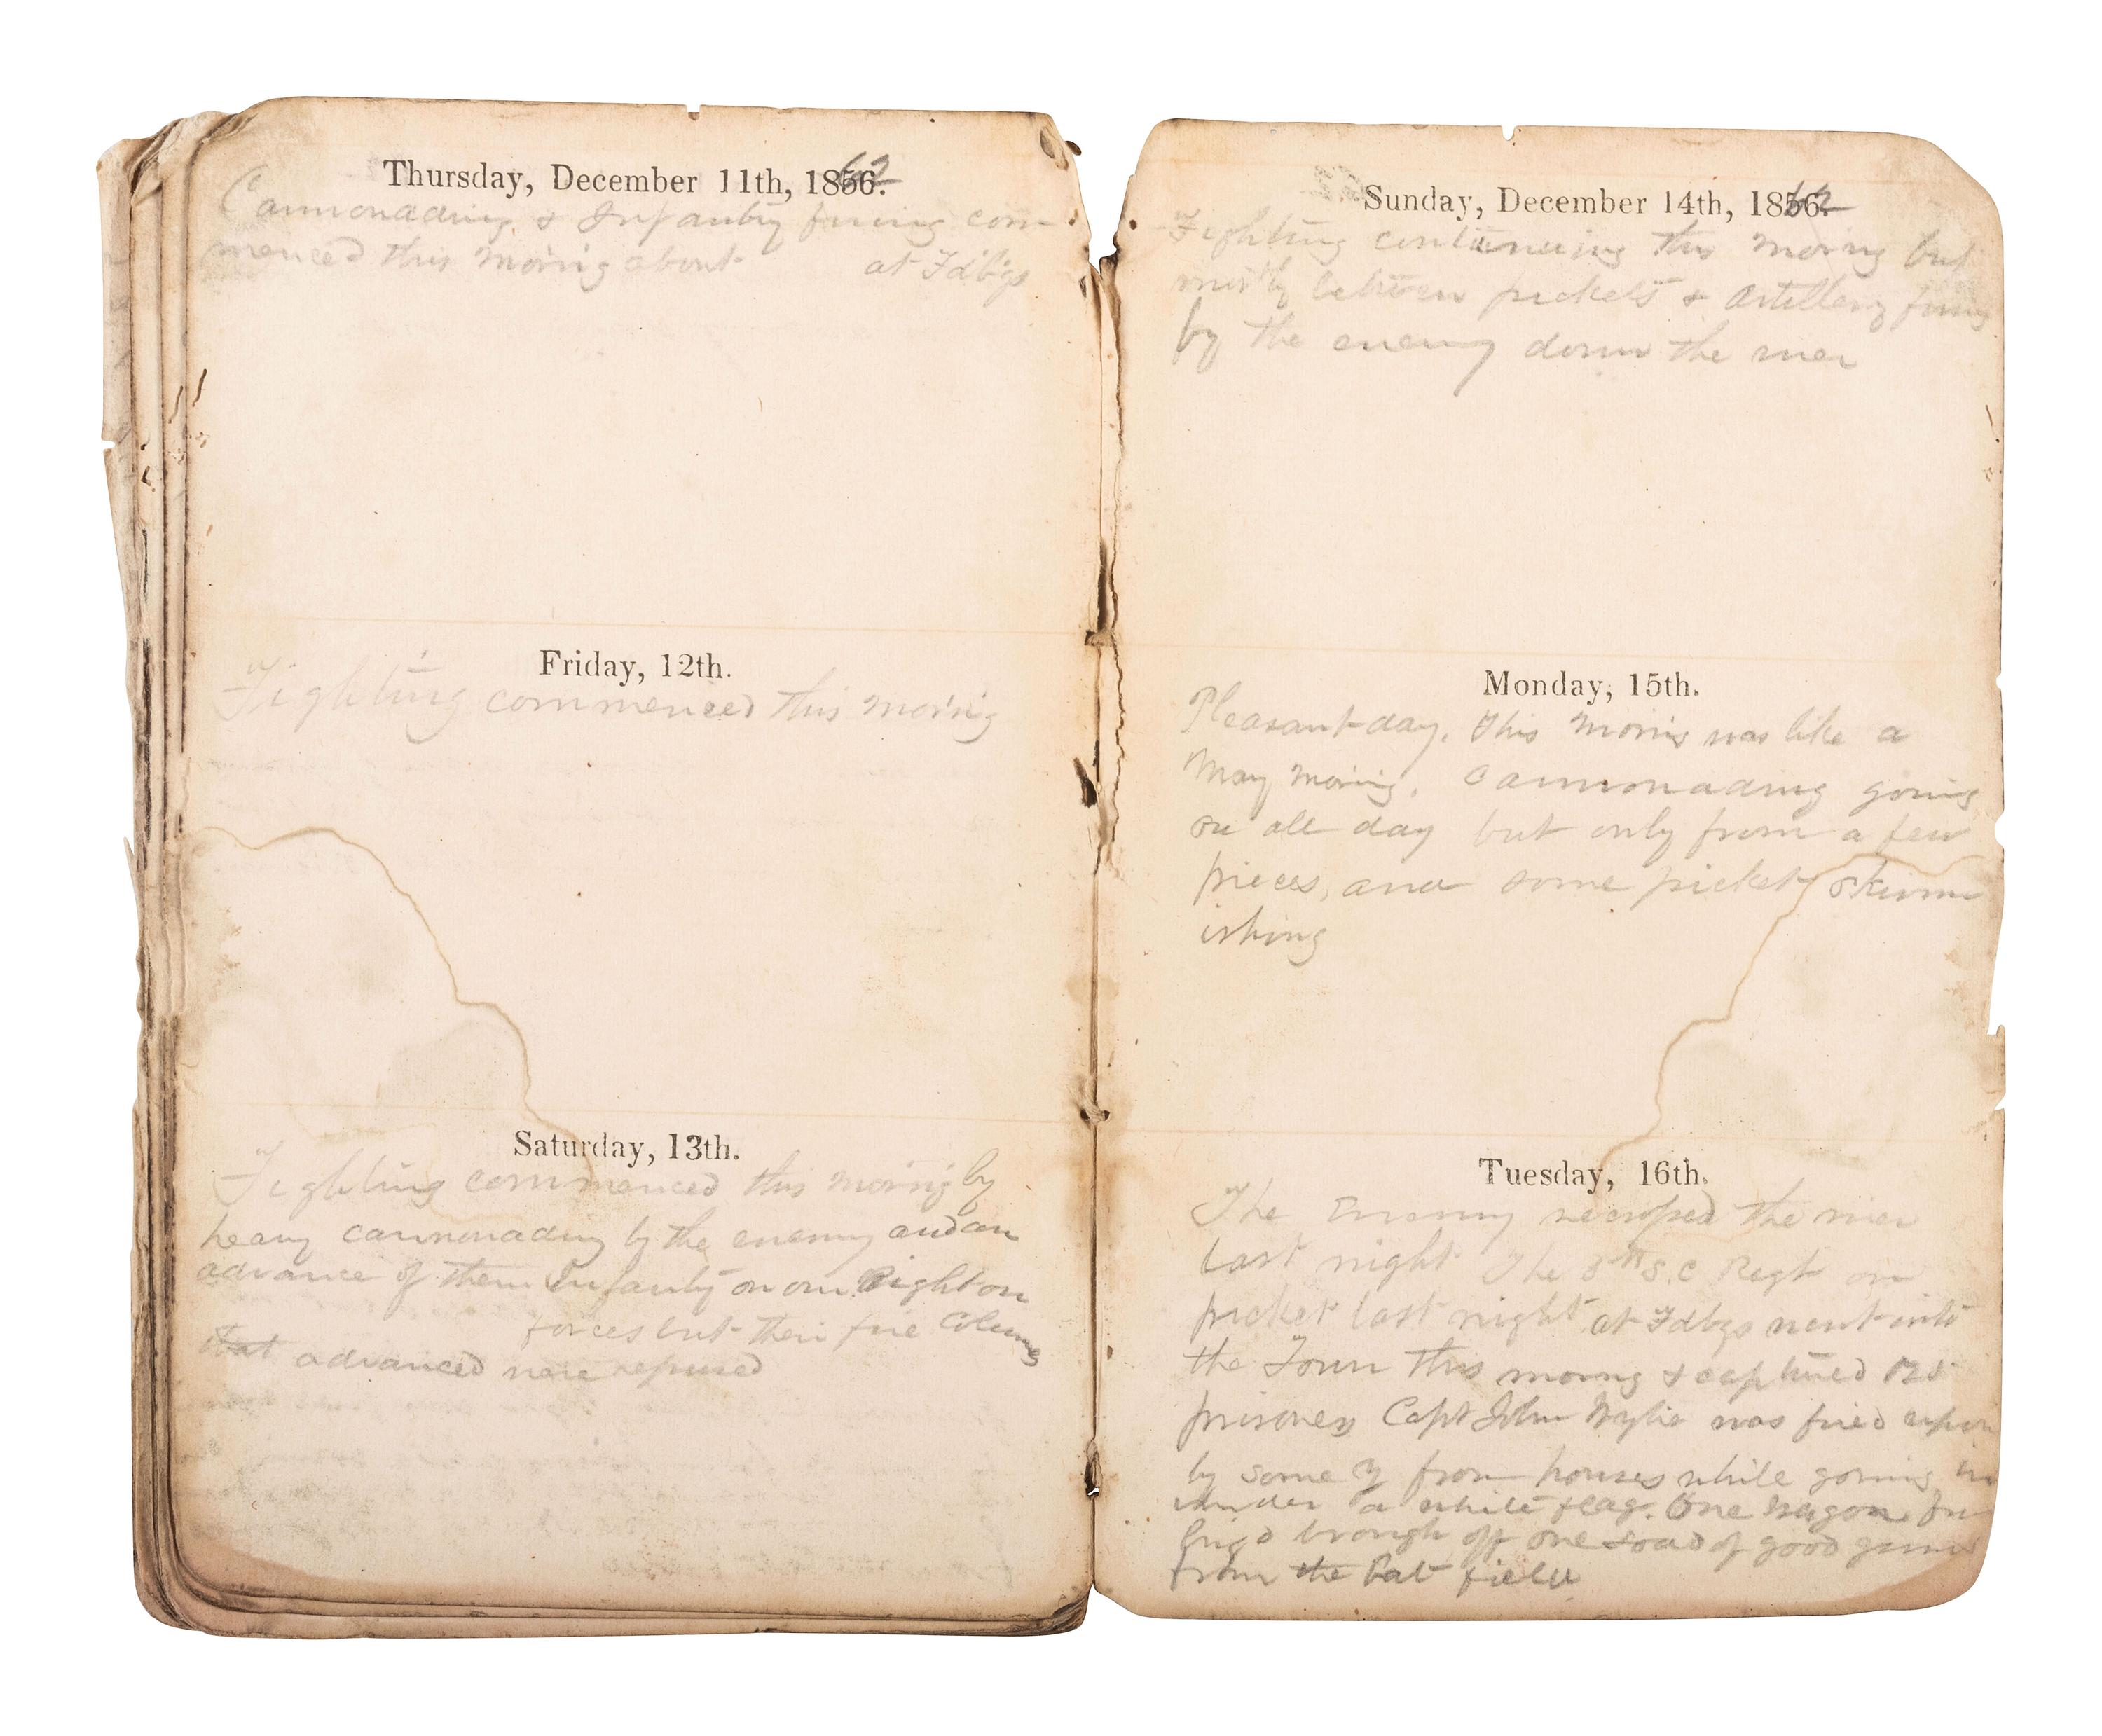 Thursday, December 11th, 1862.
Cannonading & Infantry firing com
menced this morning about at Fdbgs
Friday, 12th.
Fighting commenced this morning
Saturday, 13th.
Fighting commenced this morning by
heavy cannonading by the enemy and an
advance of them Infantry on our Right on
forces but their fire Columns
that advanced were repused
Sunday, December 14th, 1862.
Fighting continueing this morng but
mostly between pickets & Artillery firing
by the enemy down the river
Monday, 15th.
Pleasant day. This mornig was like a
May morning. Cannonading going
on all day but only from a few
pieces, and some picket skirm
ishing
Tuesday, 16th.
The Enemy recrossed the river
last night The S.C Regt on
picket last night at Fdbgs went into
the Town this morng & captured
prisoners Capt John Wylie was fired upon
by some Y from houses while going in
under a white flag. One wagon
Brigd brough off one load of good guns
from the Bat field